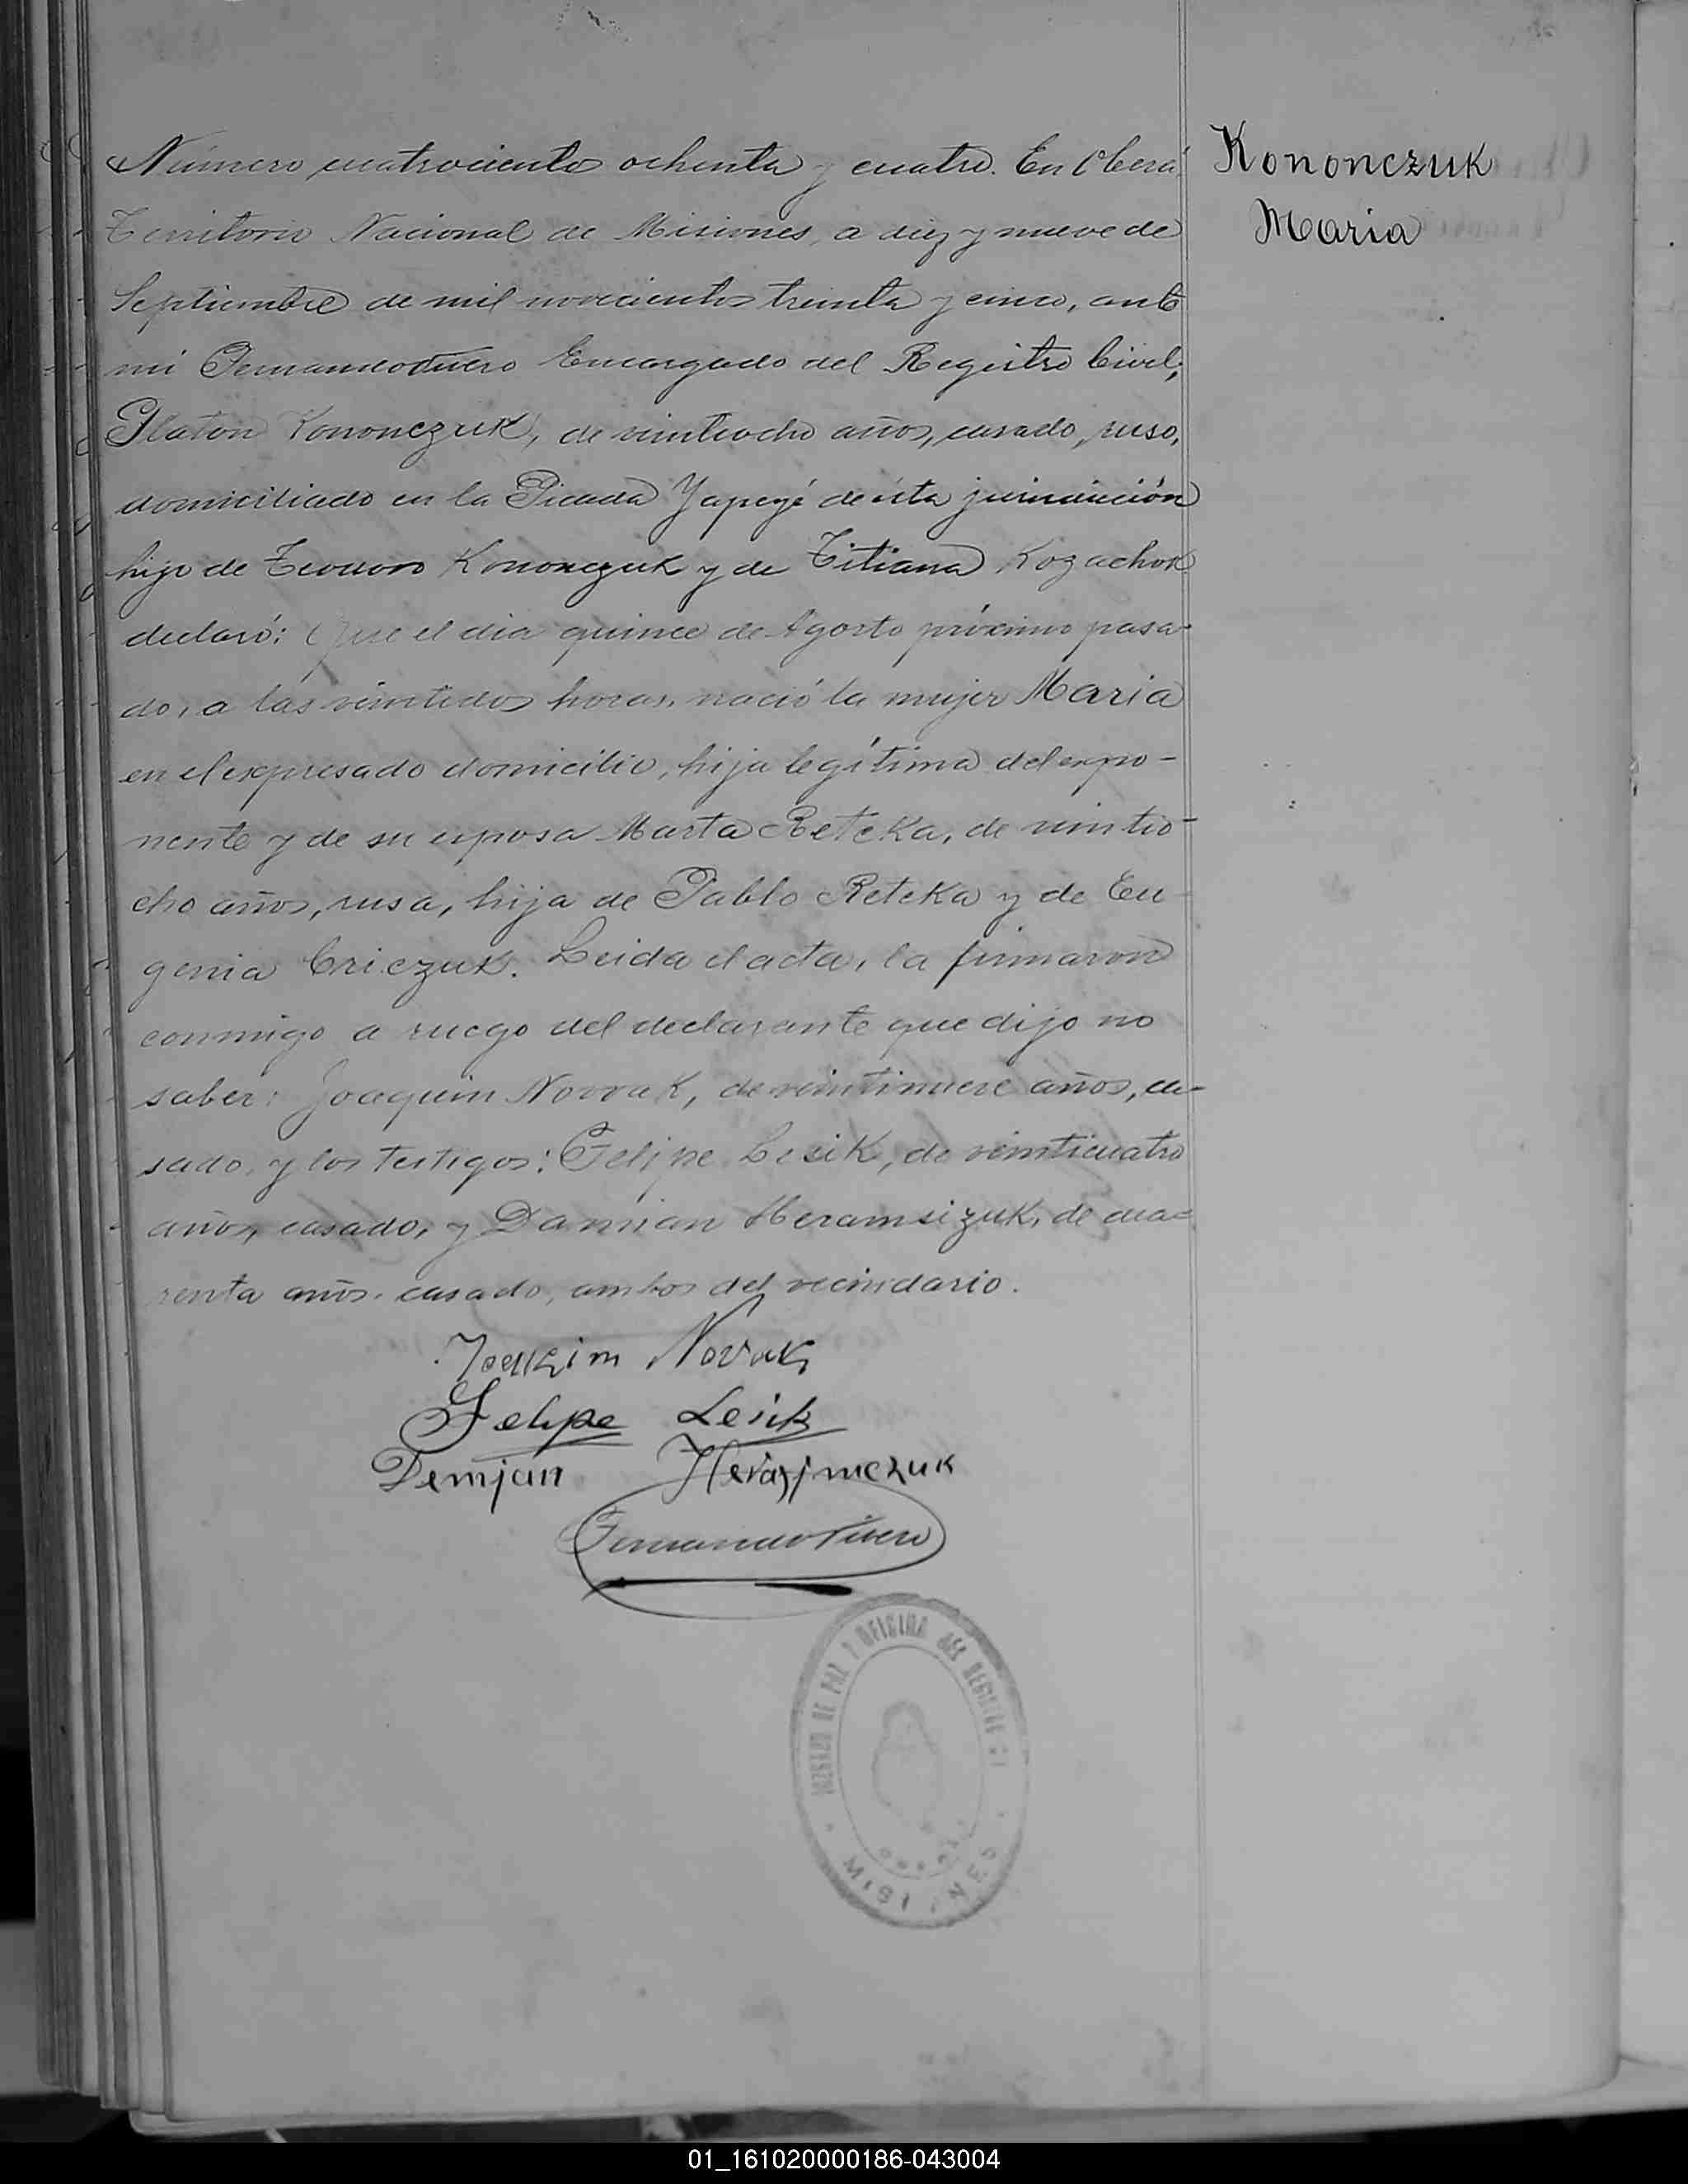 Número cuatrocientos ochenta y cuatro. En Oberá
Territorio Nacional de Misiones, a diez y nueve de
Septiembre de mil novecientos treinta y cinco, ante
mi Encargado del Registro Civil,
Platon Kononczuk, de veintiocho años, casado, ruso,
domiciliado en la Picada Yapeyú de ésta jurisdicción
hijo de Teodoro Kononczuk y de Titiana Kozachok
declaró: Que el dia quince de Agosto próximo pasa-
do, a las veintidos horas, nació la mujer Maria
en el expresado domicilio, hija legítima del expo-
nente y de su esposa Marta Reteka, de veintio-
cho años, rusa, hija de Pablo Reteka y de Eu-
genia Criczuk. Leida el acta, la firmaron
conmigo a ruego del declarante que dijo no
saber: Joaquin Novvak, de veintinueve años, ca-
sado, y los testigos: Felipe Lesik, de veinticuatro
años, casado, y Damian Heramsizuk, de cua-
renta años, casado, ambos del vecindario.
Kononczuk
Maria
Joakim Novak
Felipe Lesik
Demjan Herasjmczuk
JUZGADO DE PAZ Y OFICINA DEL REGISTRO
MISIONES
01_161020000186-043004